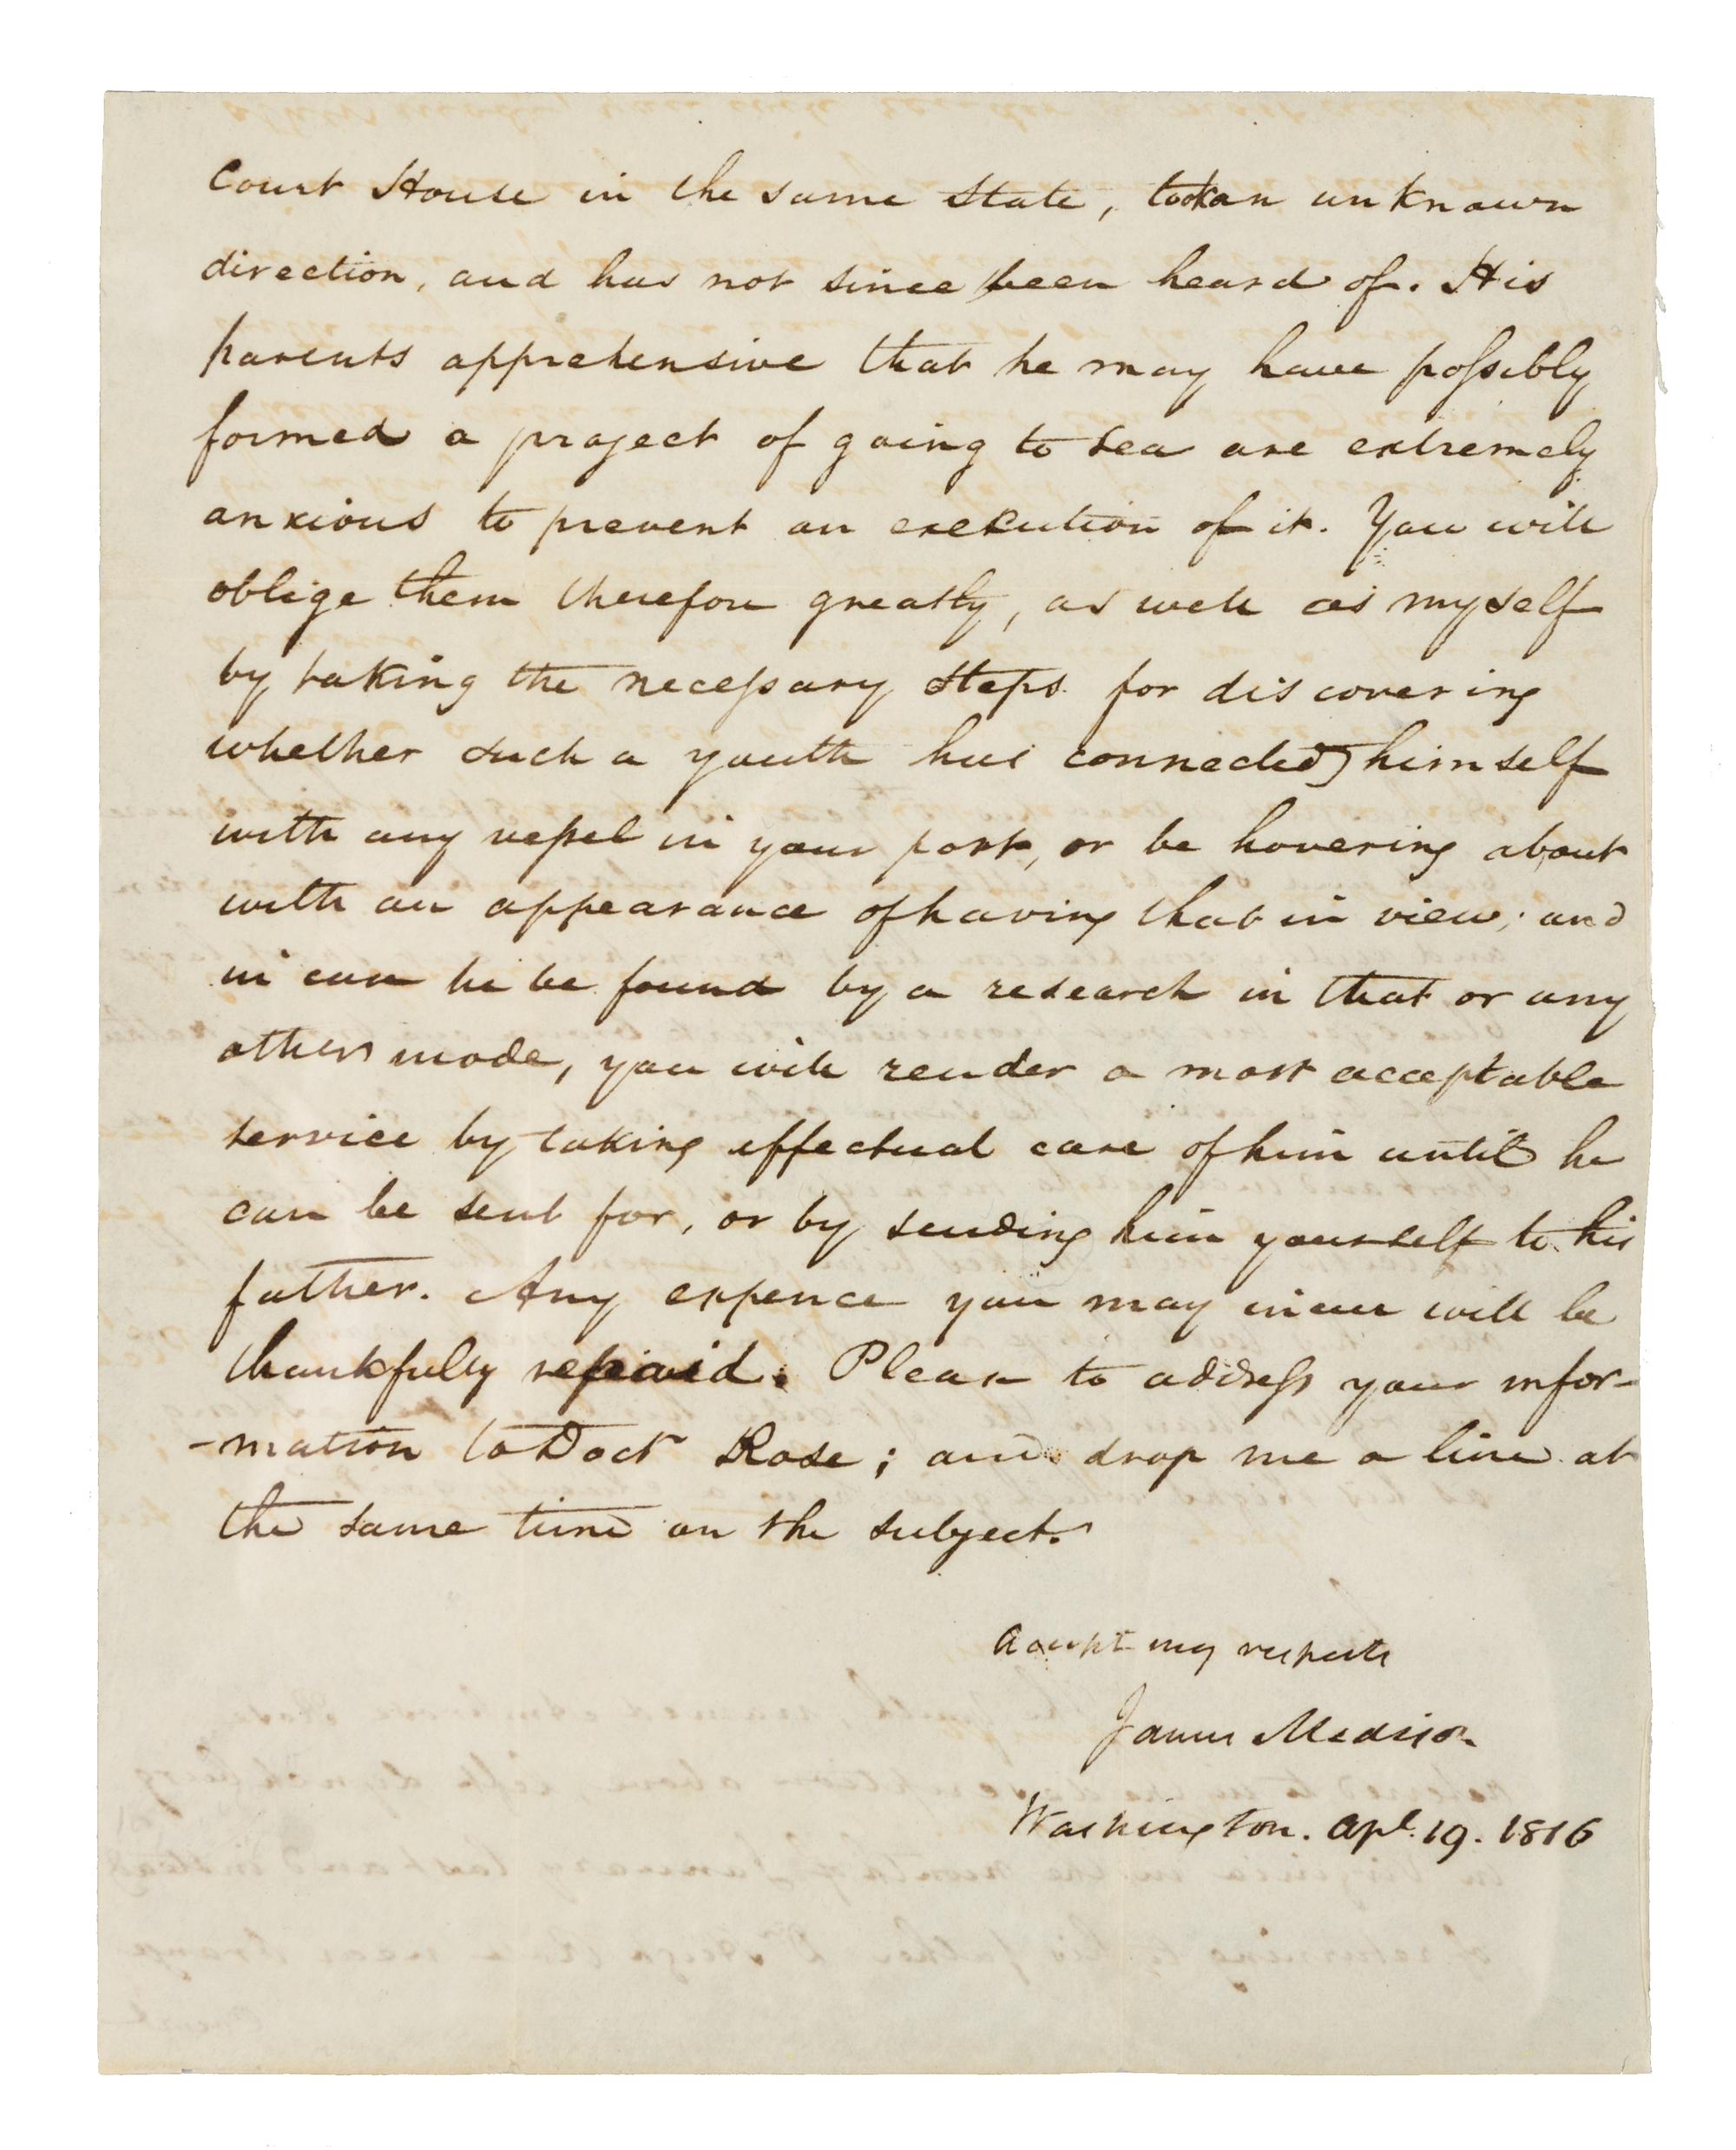 Court House in the same State, took an unknown
direction, and has not since been heard of. His
parents apprehensive that he may have poſsibly
formed a project of going to sea are extremely
anxious to prevent an execution of it. You will
oblige them therefore greatly, as well as myself
by taking the neceſsary steps for discovering
whether such a youth has connected himself
with any veſsel in your port, or be hovering about
with an appearance of having that in view; and
in case he be found by a research in that or any
other mode, you will render a most acceptable
service by taking effectual care of him until he
can be sent for, or by sending him yourself to his
father. Any expence you may incur will be
thankfully repaid. Please to addreſs your infor-
-mation to Doctr Rose; and drop me a line at
the same time on the subject.
Accept my respects
James Madison
Washington. Apl. 19. 1816